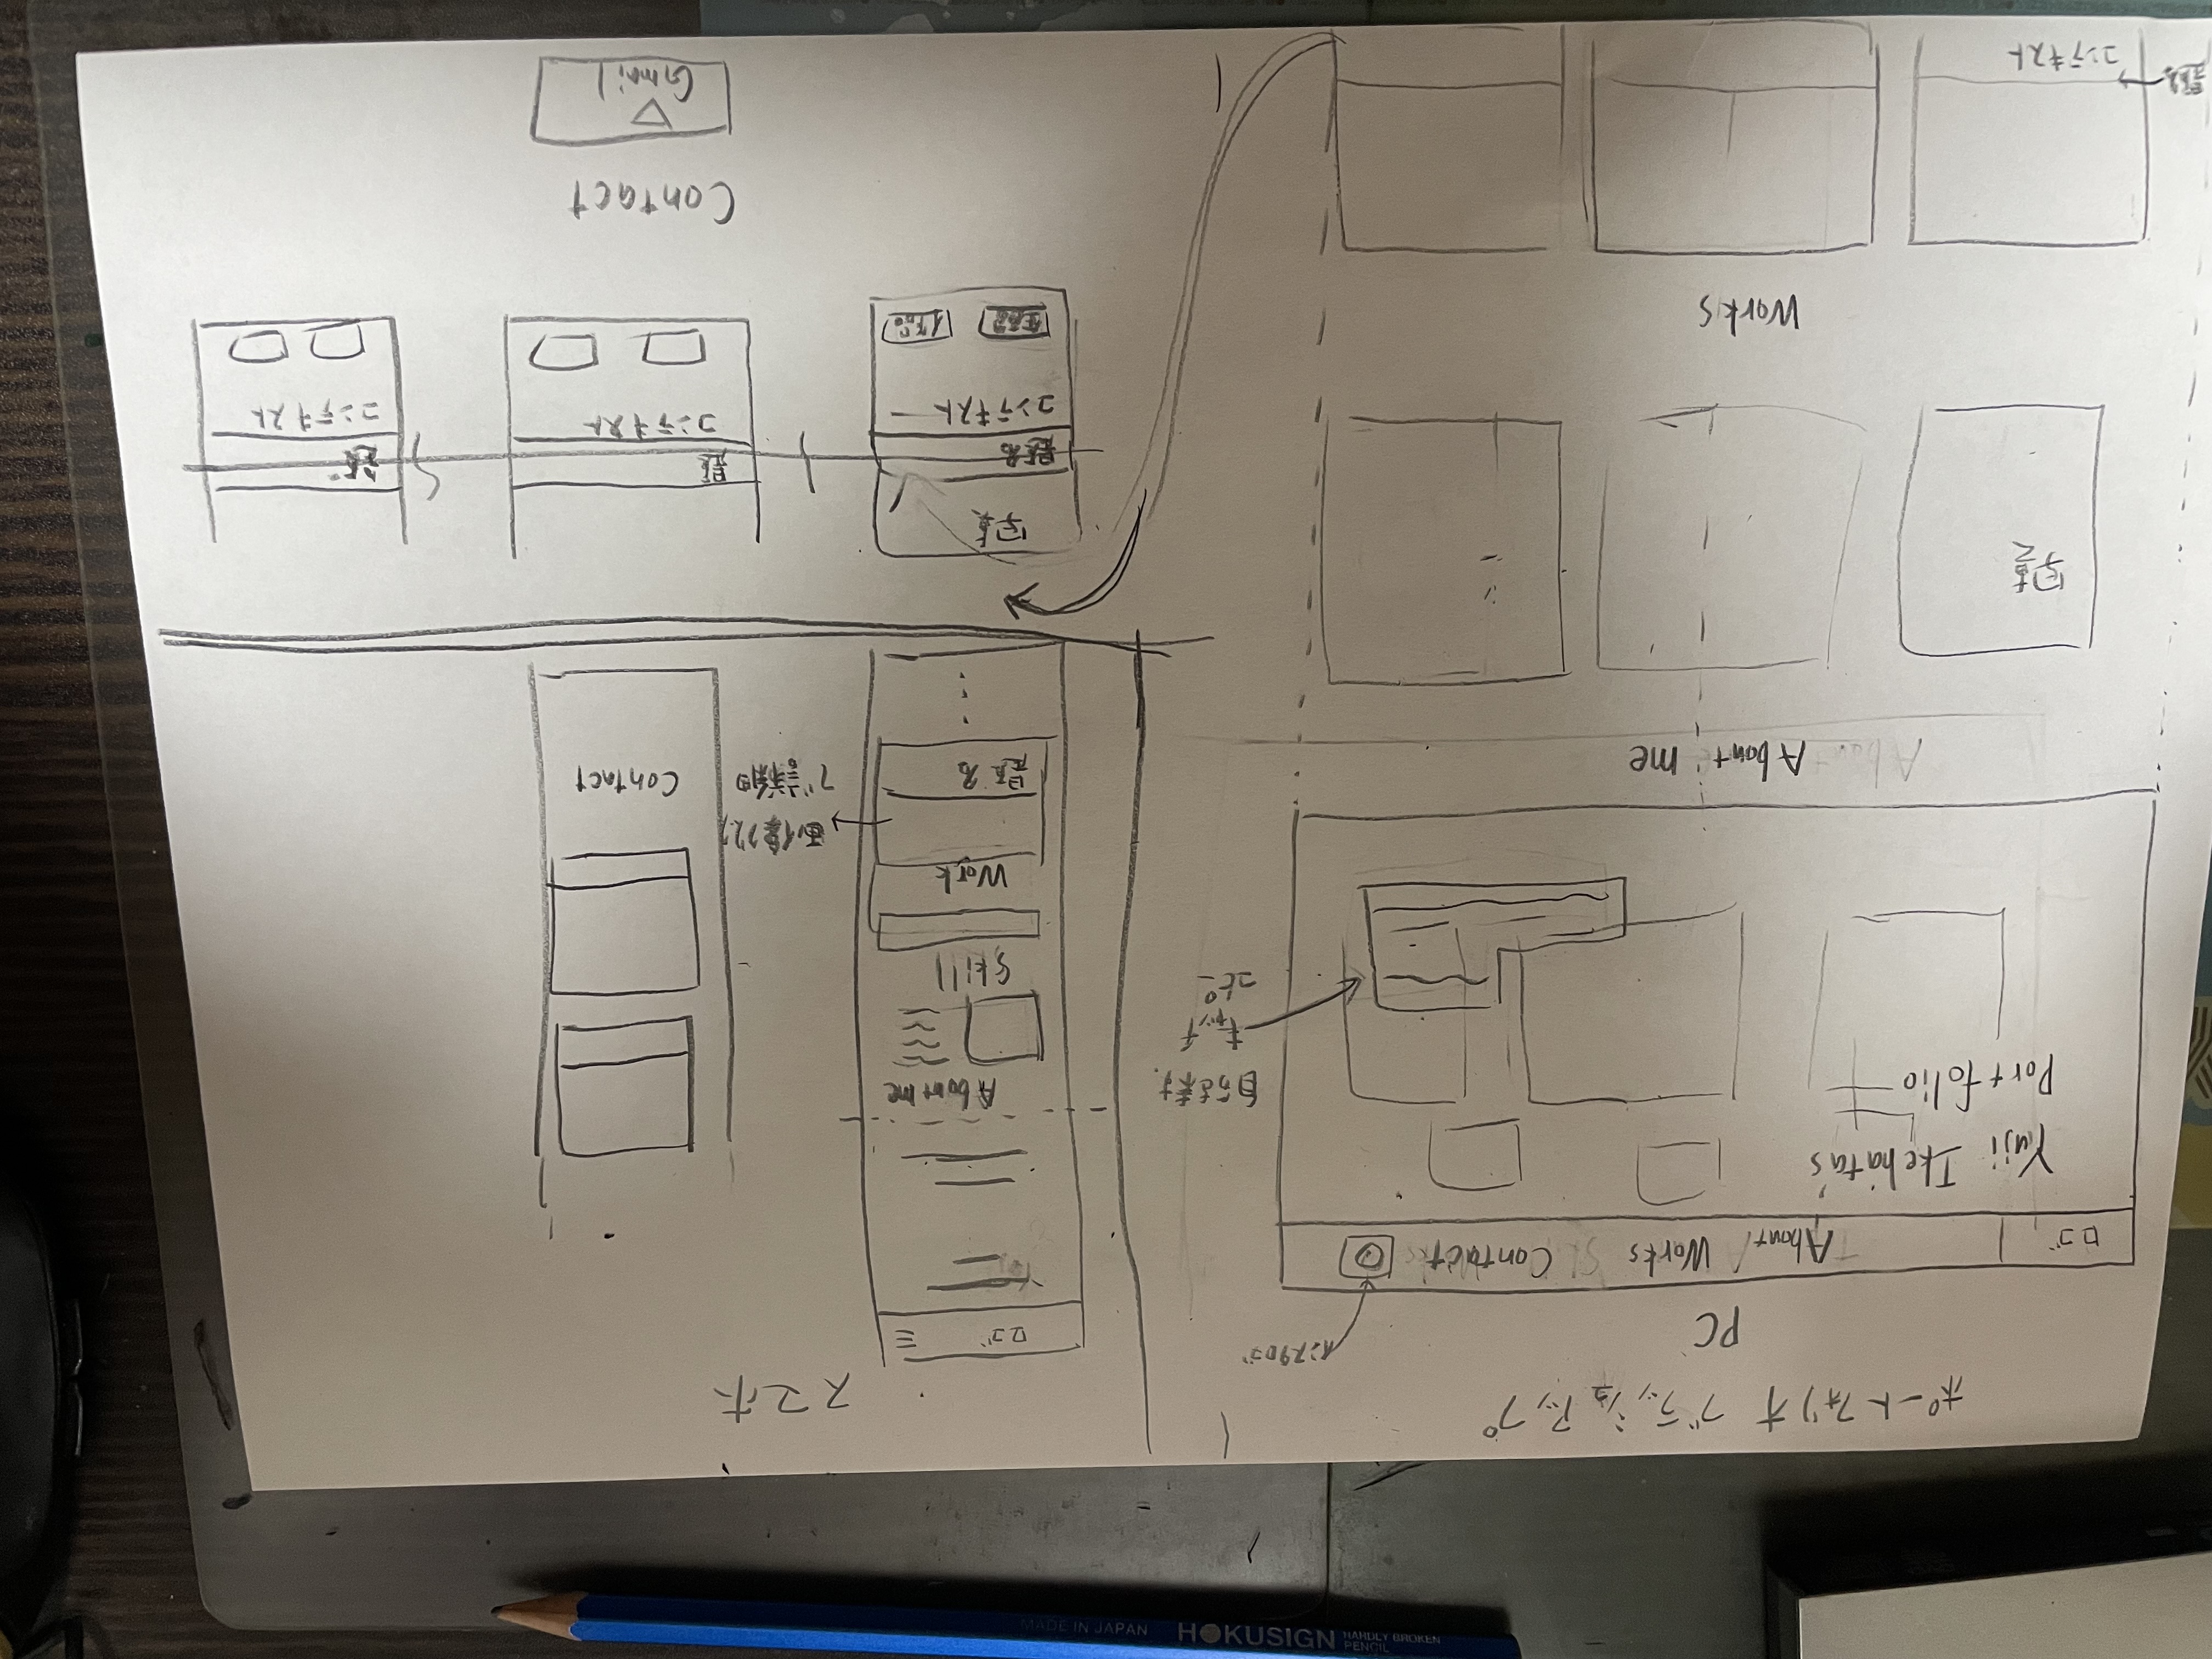 HOKUSIGN
HANDLY BROKEN
PENCIL
MADE IN JAPAN
ポートフォリオ ブラッシュアップ
PC
インスタロゴ
ロゴ About Works Contact
Yuji Ikehata's
Portfolio
自分を表す
キャッチ
コピー
About me
写真
Works
題名
コンテキスト
スマホ
ロゴ
About me
Skill
Work
題名
画像クリック
で詳細
Contact
写真
題名
コンテキスト
作品
題
コンテキスト
コンテキスト
Contact
Gmail